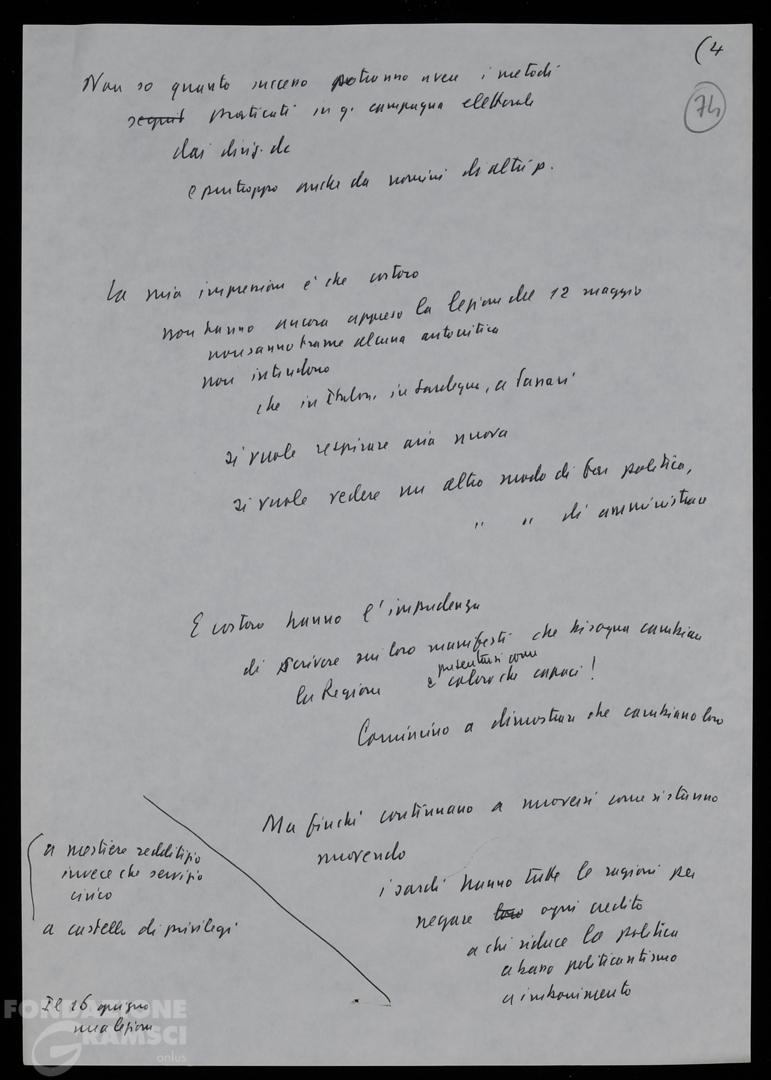 (4
74
Non so quanto successo potranno avere i metodi
seguit praticati in q. campagna elettorale
dai dirig. dc
e purtroppo anche da uomini di altri p.
La mia impressione è che costoro
non hanno ancora appreso la lezione del 12 maggio
non sanno trarre alcuna autocritica
non intendono
che in Italia, in Sardegna, a Sassari
si vuole respirare aria nuova
si vuole vedere un altro modo di fare politica,
" " di amministrare
E costoro hanno l'impudenza
di scrivere sui loro manifesti che bisogna cambiare
la Regione e presentarsi come coloro che capaci!
Comincino a dimostrare che cambiano loro
Ma finché continuano a muoversi come si stanno
muovendo
i sardi hanno tutte le ragioni per
negare loro ogni credito
a chi riduce la politica
a basso politicantismo
a imbonimento
a mestiere redditizio
invece che servizio
civico
a castello di privilegi
Il 16 giugno
una lezione
FONDAZIONE
GRAMSCI
onlus